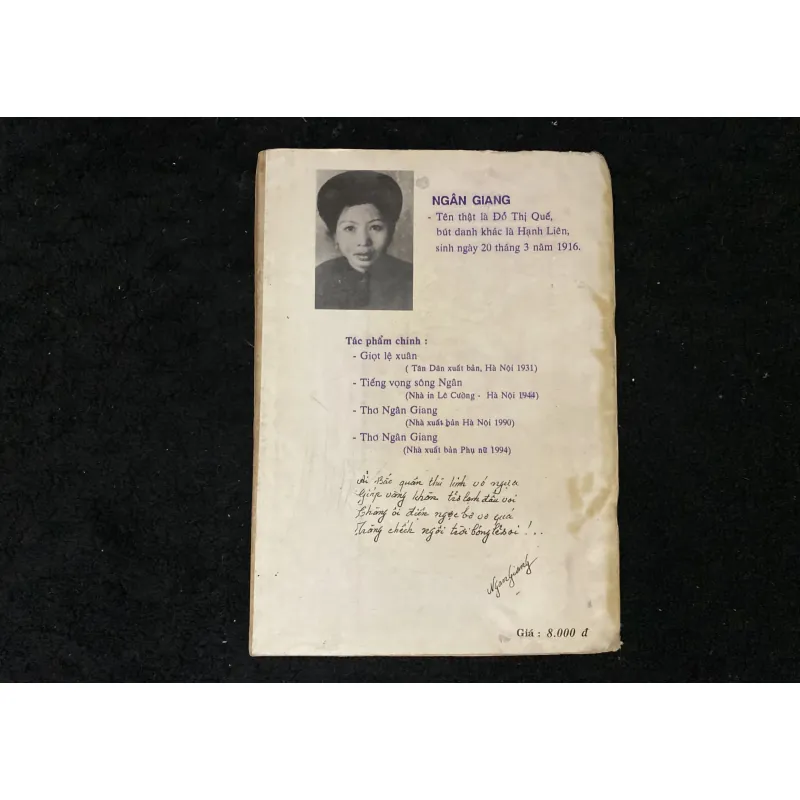 NGÂN GIANG
- Tên thật là Đỗ Thị Quế,
bút danh khác là Hạnh Liên,
sinh ngày 20 tháng 3 năm 1916.
Tác phẩm chính :
- Giọt lệ xuân
( Tân Dân xuất bản, Hà Nội 1931)
- Tiếng vọng sông Ngân
(Nhà in Lê Cường - Hà Nội 1944)
- Thơ Ngân Giang
(Nhà xuất bản Hà Nội 1990)
- Thơ Ngân Giang
(Nhà xuất bản Phụ nữ 1994)
Ải Bắc quân thù kinh vó ngựa
Giáp vàng khăn trở lạnh đầu voi
Chàng ơi điện ngọc bơ vơ quá
Trăng chếch ngôi trời bóng lẻ soi !..
Ngân Giang
Giá : 8.000 đ